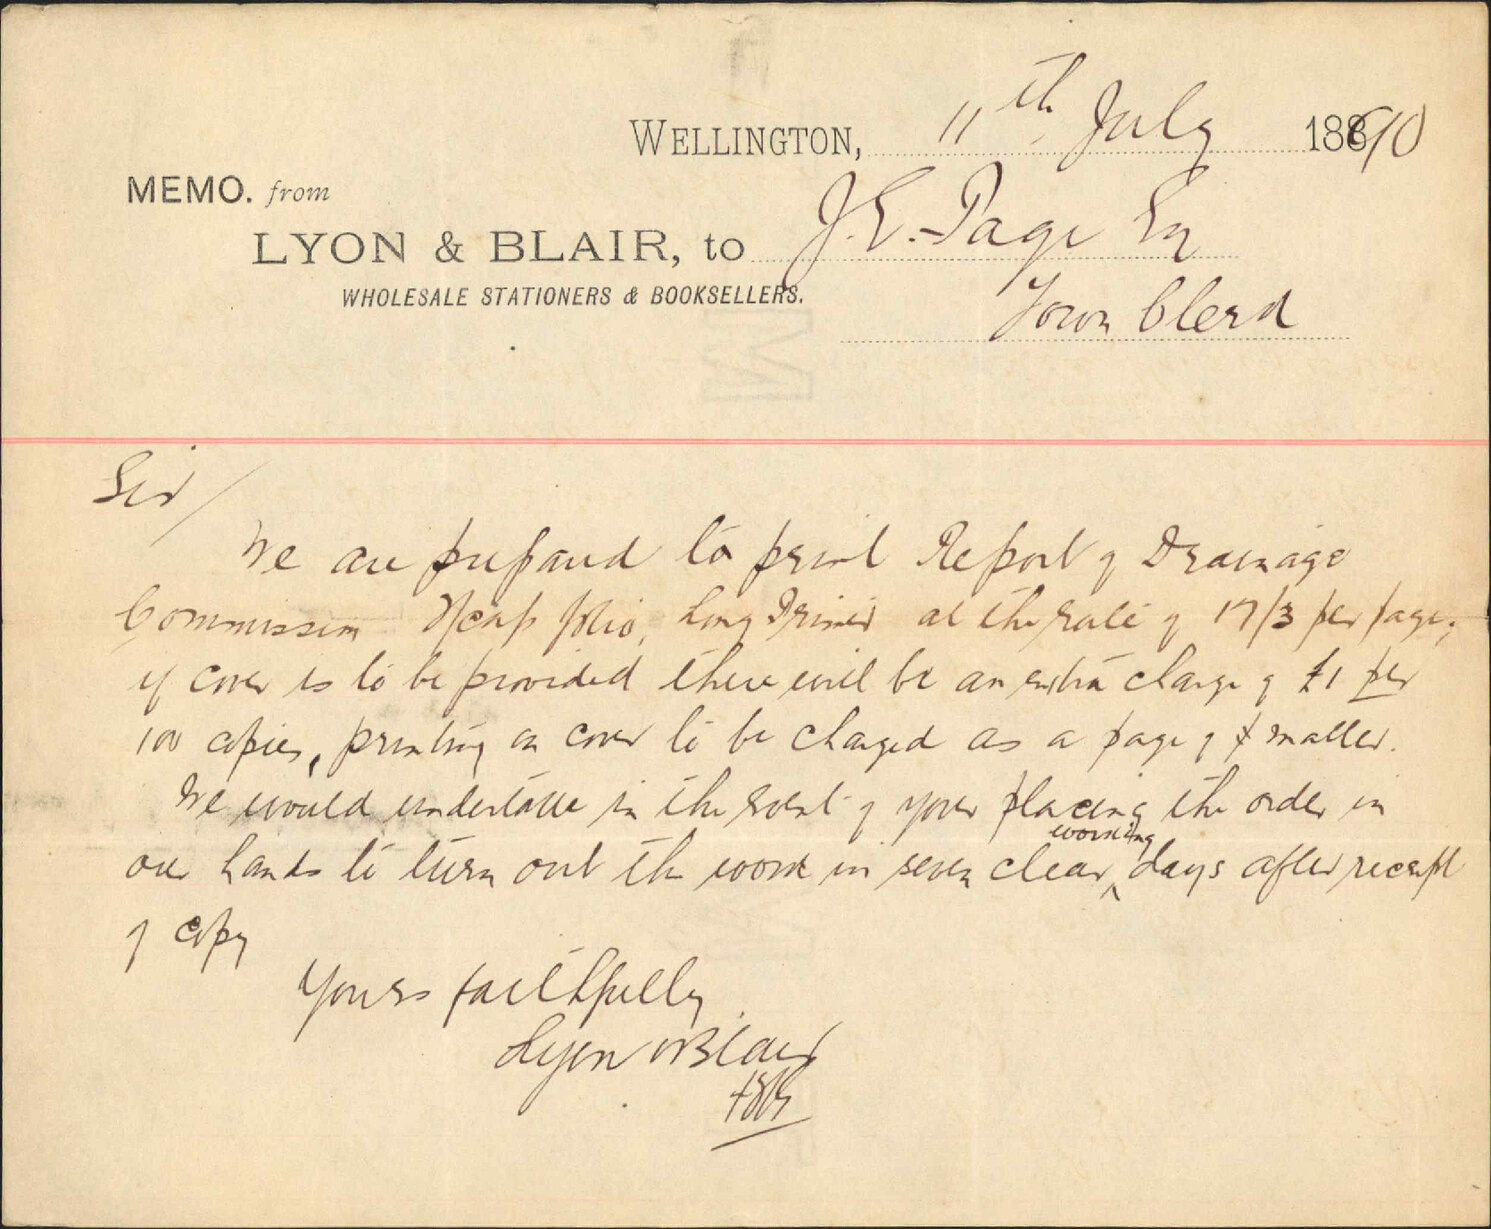 WELLINGTON, 11th July 1890
MEMO. from
LYON & BLAIR, to J.E. Page Esq
WHOLESALE STATIONERS & BOOKSELLERS.
Town Clerk
Sir/
We are prepared to print Report of Drainage
Commission Fcap folio, Long Primer at the rate of 17/3 per page;
if cover is to be provided there will be an extra charge of £1 per
100 copies, printing on cover to be charged as a page of matter.
We would undertake in the event of your placing the order in
our hands to turn out the work in seven clear working days after receipt
of copy
Yours faithfully
Lyon & Blair